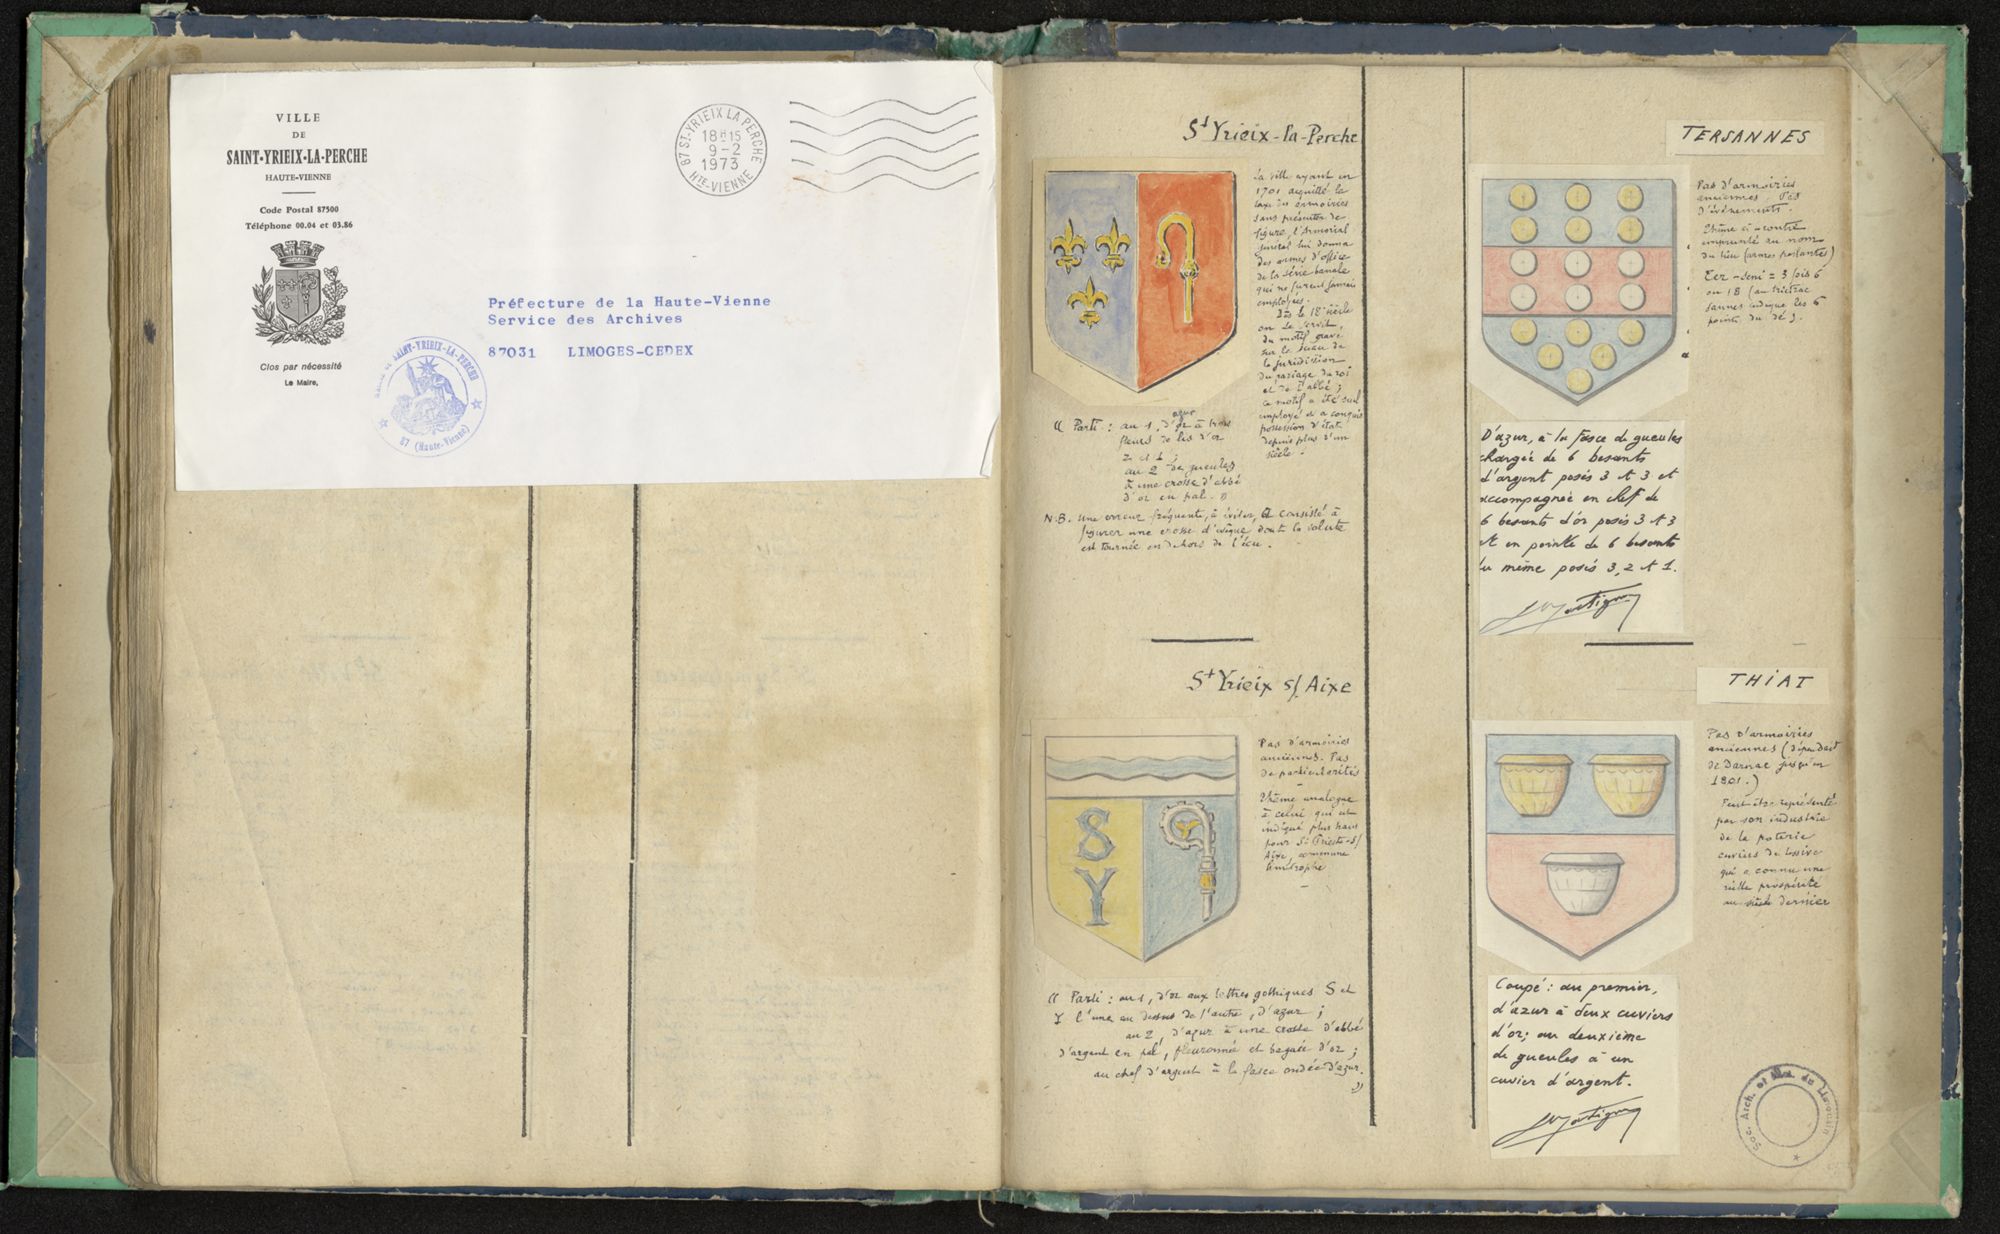 VILLE
DE
SAINT-YRIEIX-LA-PERCHE
HAUTE-VIENNE
Code Postal 87500
Téléphone 00.04 et 03.86
Clos par nécessité
Le Maire,
87 ST-YRIEIX LA PERCHE
18H15
9-2
1973
HTE-VIENNE
Préfecture de la Haute-Vienne
Service des Archives
87031 LIMOGES-CEDEX
SAINT-YRIEIX-LA-PERCHE
87 (Haute-Vienne)
St Yrieix-la-Perche
La ville ayant en
1701 acquitté la
taxe des armoiries
sans présenter de
figure, l'Armorial
général lui donna
des armes d'office
de la série banale
qui ne furent jamais
employées.
Dès le 18e siècle
on se servit,
du motif gravé
sur le sceau de
la juridiction
du pariage du roi
et de l'abbé ;
ce motif a été seul
employé et a conquis
possession d'état
depuis plus d'un
siècle.
(( Parti : au 1, d'or à trois
azur
fleurs de lis d'or
2 et 1 ;
au 2 de gueules
à une crosse d'abbé
d'or en pal. ))
N.B. Une erreur fréquente, à éviter, a consisté à
figurer une crosse d'évêque dont la volute
est tournée en dehors de l'écu.
St Yrieix s/ Aixe
Pas d'armoiries
anciennes. Pas
de particularités
Thème analogue
à celui qui est
indiqué plus haut
pour St Prieste-s/
Aixe, commune
limitrophe
S
Y
(( Parti : au 1, d'or aux lettres gothiques S et
Y l'une au dessus de l'autre, d'azur ;
au 2, d'azur à une crosse d'abbé
d'argent en pal, fleuronnée et baguée d'or ;
au chef d'argent à la fasce ondée d'azur.
))
TERSANNES
Pas d'armoiries
anciennes. Pas
d'événements.
Thème ci-contre
emprunté au nom
du lieu (armes parlantes)
Ter-seni = 3 fois 6
ou 18 (au trictrac
sannes indique les 6
points du dé).
D'azur, à la fasce de gueules
chargée de 6 besants
d'argent posés 3 et 3 et
accompagnée en chef de
6 besants d'or posés 3 et 3
et en pointe de 6 besants
du même posés 3, 2 et 1.
THIAT
Pas d'armoiries
anciennes (dépendait
de Darnac jusqu'en
1801.)
Peut être représenté
par son industrie
de la poterie
cuviers de lessive
qui a connu une
réelle prospérité
au siècle dernier
Coupé : au premier,
d'azur à deux cuviers
d'or; au deuxième
de gueules à un
cuvier d'argent.
Soc. Arch. et Hist. du Limousin